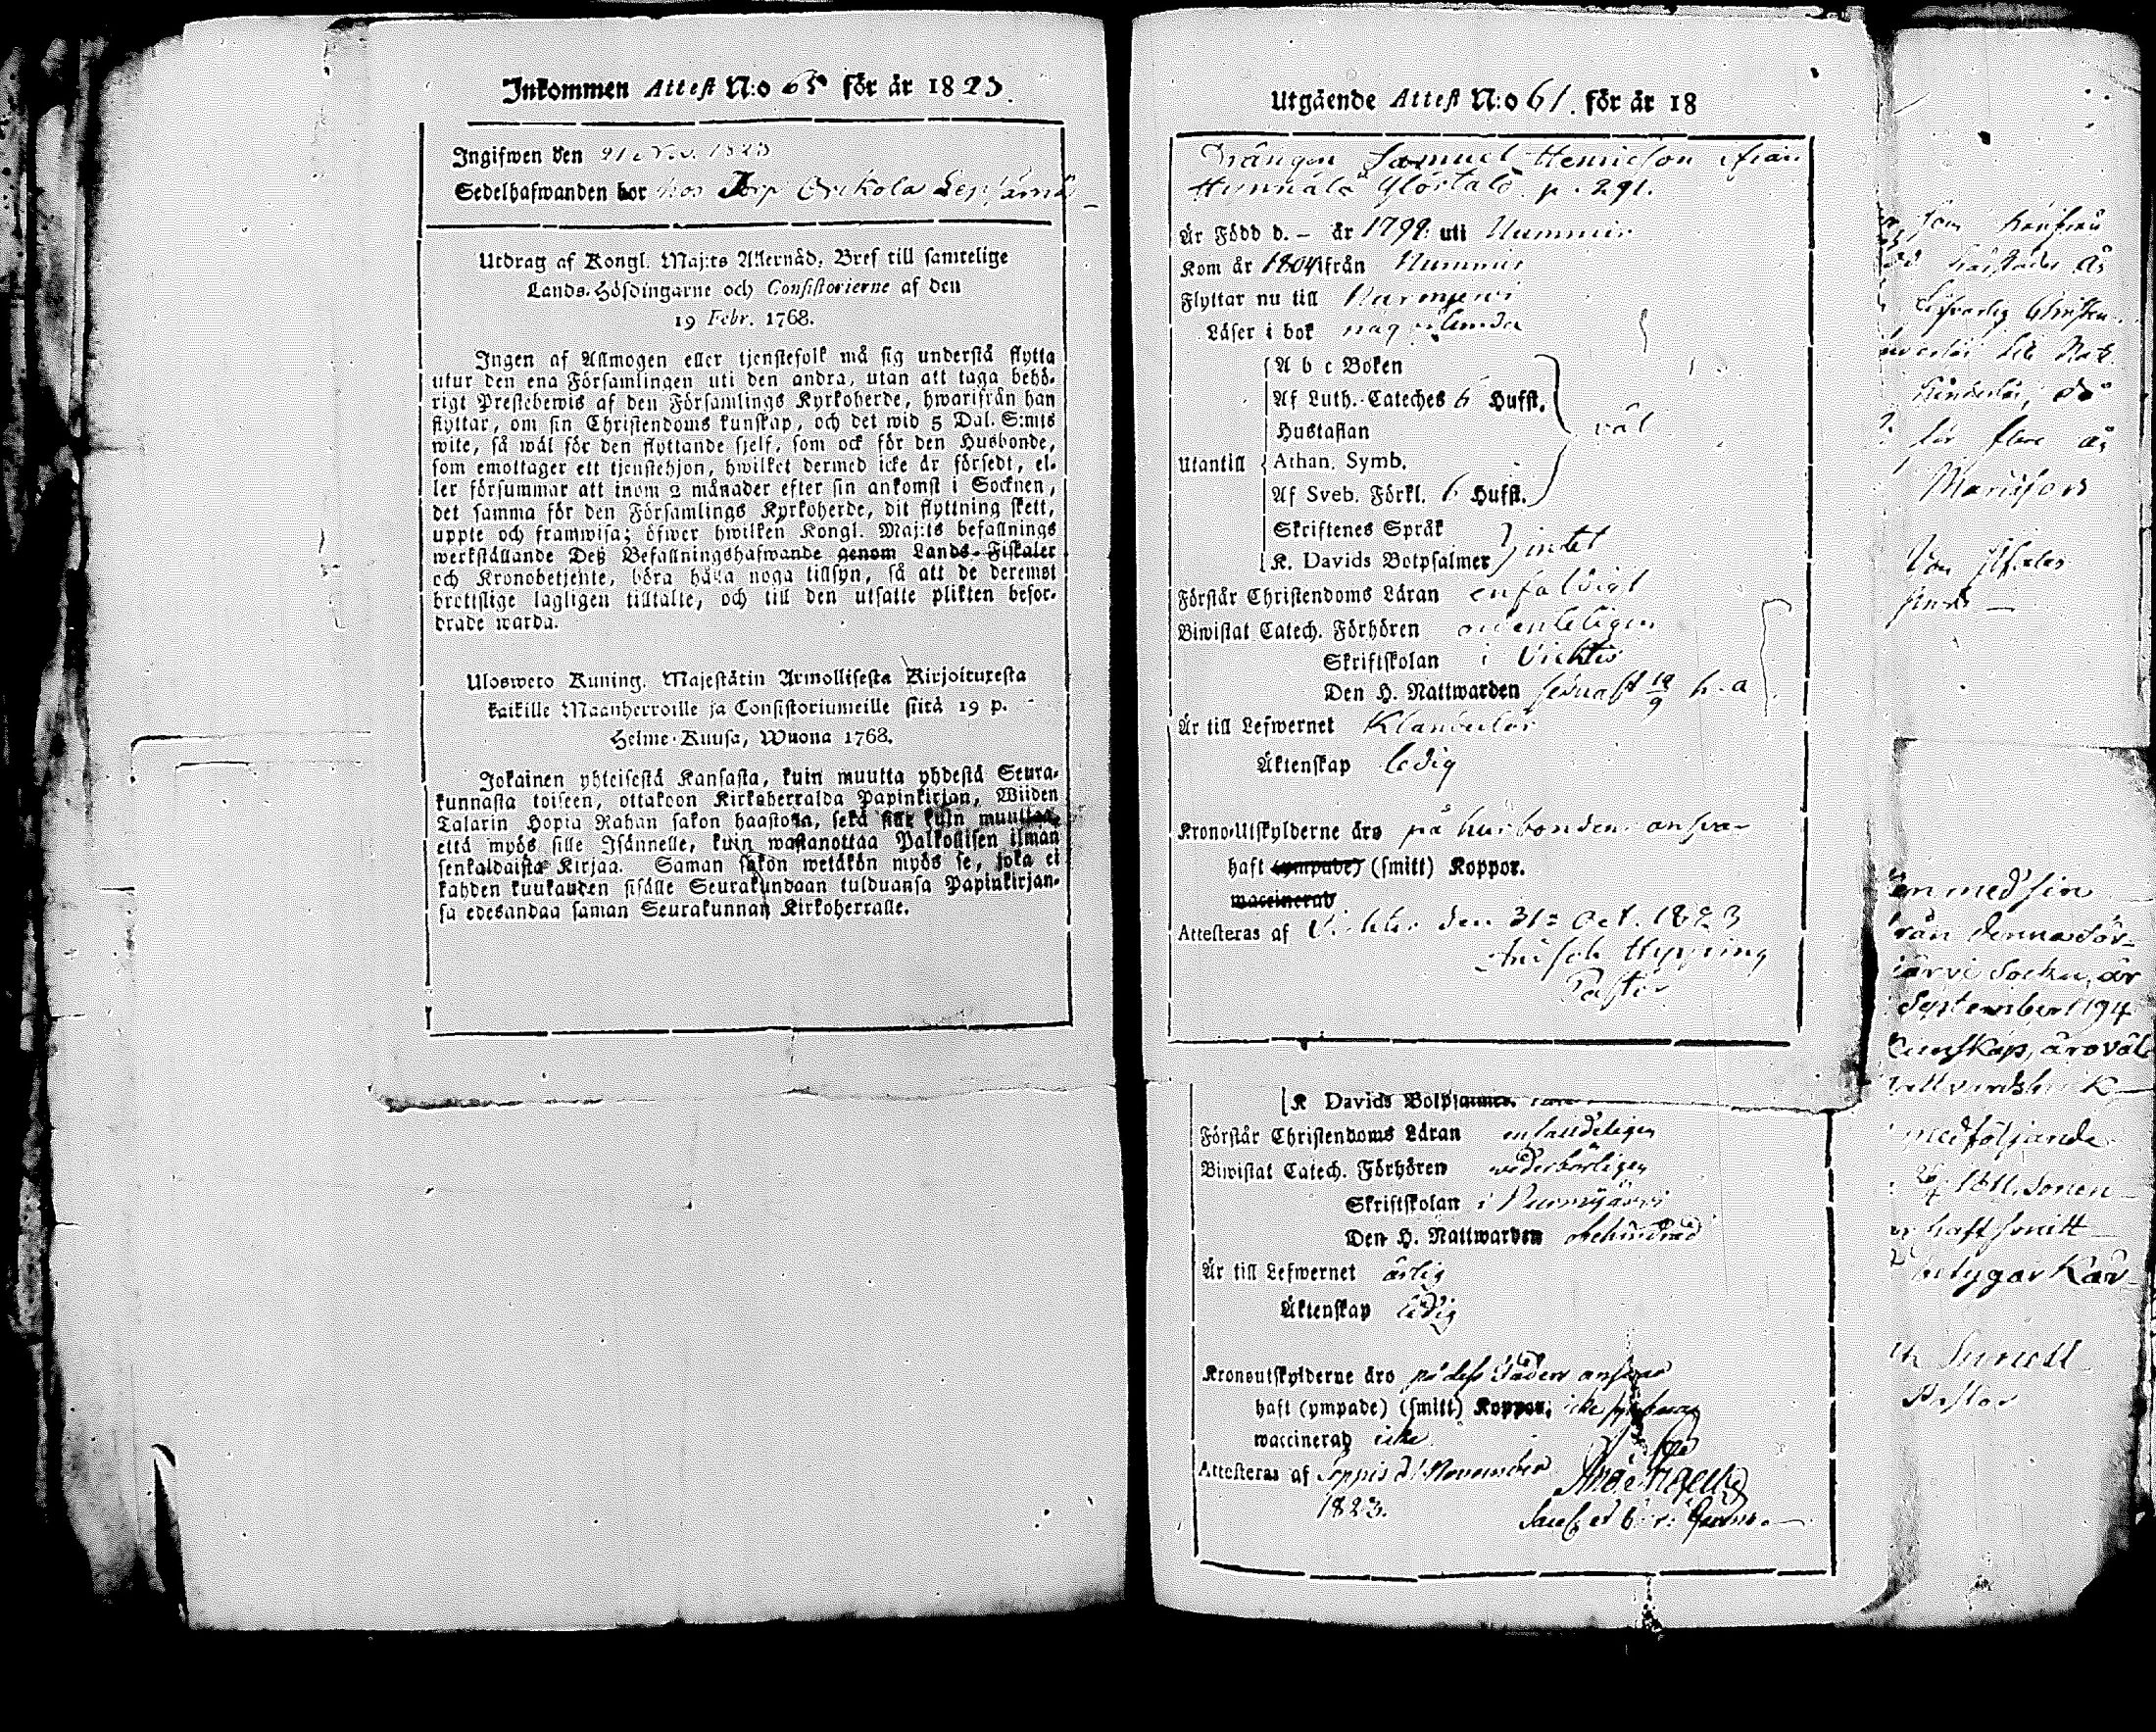 Inkommen Attest N:o 65 för år 1823.
Ingifwen den 21 Nov. 1823
Sedelhafwanden bor hos Torp
Utdrag af Kongl. Maj:ts Allernåd. Bref till samtelige
Lands-Höfdingarne och Consistorierne af den
19 Febr. 1768.
Ingen af Allmogen eller tjenstefolk må sig understå flytta
utur den ena Församlingen uti den andra, utan att taga behö-
rigt Prestebewis af den Församlings Kyrkoherde, hwarifrån han
flyttar, om sin Christendoms kunskap, och det wid 5 Dal. S:mts
wite, så wäl för den flyttande sjelf, som ock för den Husbonde,
som emottager ett tjenstehjon, hwilket dermed icke är försedt, el-
ler försummar att inom 2 månader efter sin ankomst i Socknen,
det samma för den Församlings Kyrkoherde, dit flyttning skett,
uppte och framwisa; öfwer hwilken Kongl. Maj:ts befallnings
werkställande Deß Befallningshafwande genom Lands-Fiskaler
och Kronobetjente, böra hålla noga tillsyn, så att de deremot
brottslige lagligen tilltalte, och till den utsatte plikten befor-
drade warda.
Ulosweto Kuning. Majestätin Armollisesta Kirjoituxesta
kaikille Maanherroille ja Consistoriumeille siitä 19 p.
Helme-Kuusa, Wuona 1768.
Jokainen yhteisestä Kansasta, kuin muutta yhdestä Seura-
kunnasta toiseen, ottakoon Kirkoherralda Papinkirjan, Wiiden
Talarin Hopia Rahan sakon haastolla, sekä sille kuin muuttaa,
että myös sille Isännelle, kuin wastanottaa Palkollisen ilman
senkaldaista Kirjaa. Saman sakon wetäkön myös se, joka ei
kahden kuukauden sisälle Seurakundaan tulduansa Papinkirjan-
sa edesandaa saman Seurakunnan Kirkoherralle.
Utgående Attest N:o 61. för år 18
Drängen Samuel Henricson ifrån
p. 291.
Är Född d. – år 1799. uti Nummis
Kom år 1804 ifrån Nummis
Flyttar nu till Nurmjerwi
Läser i bok någorlunda
A b c Boken
Af Luth. Cateches 6 Hufst.
Hustaflan
väl
Utantill
Athan. Symb.
Af Sveb. Förkl. 6 Hufst.
Skriftenes Språk
intet
K. Davids Botpsalmer
Förstår Christendoms Läran enfaldigt
Biwistat Catech. Förhören ordenteligen
Skriftskolan i Vichtis
Den H. Nattwarden senast 19/9 h. a.
Är till Lefwernet Klanderlös
Äktenskap ledig
Krono-Utskylderne äro på husbondens answar
haft (ympade) (smitt) Koppor.
waccinerad
Attesteras af Vichtis den 31: Oct. 1823
Hypping
Pastor
K Davids Botpsalmer
Förstår Christendoms Läran enfaldeligen
Biwistat Catech. Förhören wederbörligen
Skriftskolan i Nurmijärvi
Den H. Nattwarden obehindrad
Är till Lefwernet ärlig
Äktenskap ledig
Kronoutskylderne äro på dess Faders answar
haft (ympade) (smitt) Koppor; icke
waccinerad icke
Attesteras af d. November
1823.
som
Mariæfors
em med sin
rån denna För-
järvi Socken, är
September 1794
kunskap, äro väl
medföljande
Sonen
haft smitt
betygar
Pastor